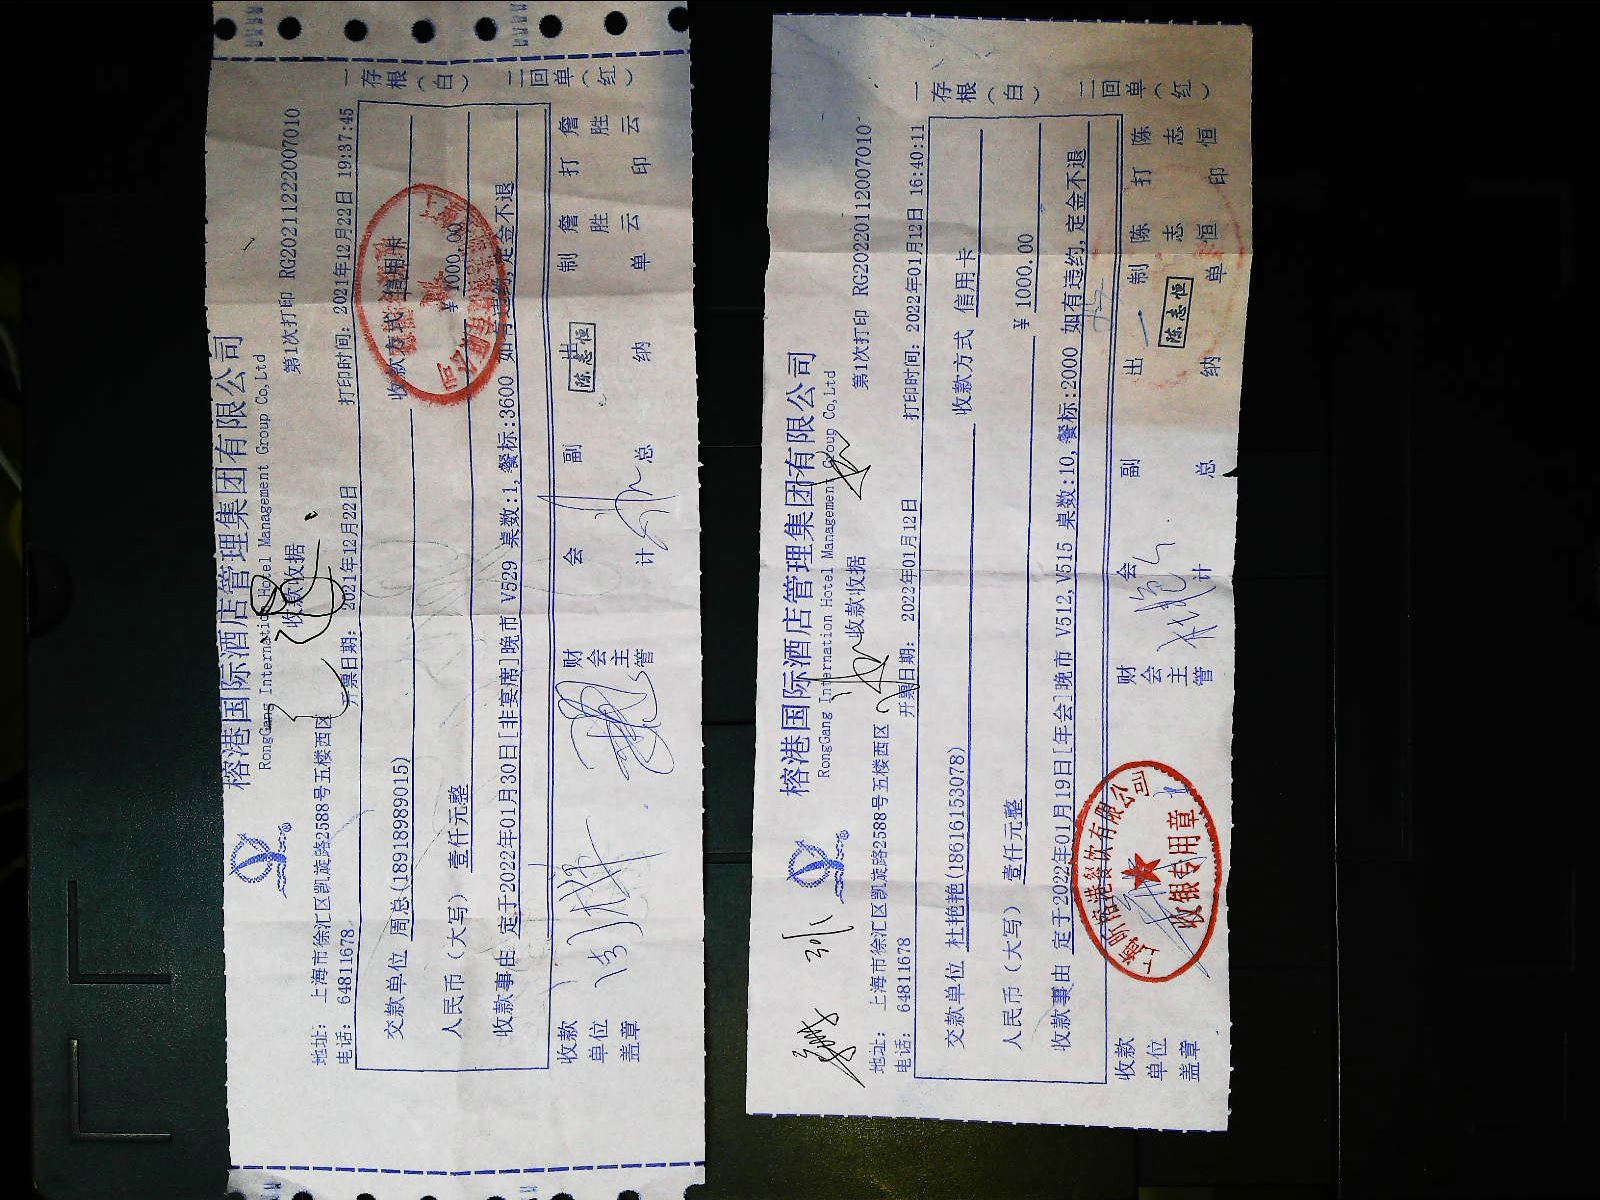 榕港国际酒店管理集团有限公司
RongGang International Hotel Management Group Co,Ltd
收款收据
第1次打印 RG20211222007010
地址: 上海市徐汇区凯旋路2588号五楼西区
电话: 64811678
开票日期: 2021年12月22日
打印时间: 2021年12月22日 19:37:45
交款单位 周总(18918989015)
收款方式 信用卡
人民币(大写) 壹仟元整
¥ 1000.00
收款事由 定于2022年01月30日[非宴席]晚市 V529 桌数:1,餐标:3600 如有违约,定金不退
收款单位盖章
财会主管
会计
副总
出纳
陈志恒
制单 詹胜云
打印 詹胜云
一存根(白)
二回单(红)
榕港国际酒店管理集团有限公司
RongGang International Hotel Management Group Co,Ltd
收款收据
第1次打印 RG20220112007010
地址: 上海市徐汇区凯旋路2588号五楼西区
电话: 64811678
开票日期: 2022年01月12日
打印时间: 2022年01月12日 16:40:11
交款单位 杜艳艳(18616153078)
收款方式 信用卡
人民币(大写) 壹仟元整
¥ 1000.00
收款事由 定于2022年01月19日[年会]晚市 V512,V515 桌数:10,餐标:2000 如有违约,定金不退
收款单位盖章
收银专用章
财会主管
会计
副总
出纳
陈志恒
制单 陈志恒
打印 陈志恒
一存根(白)
二回单(红)